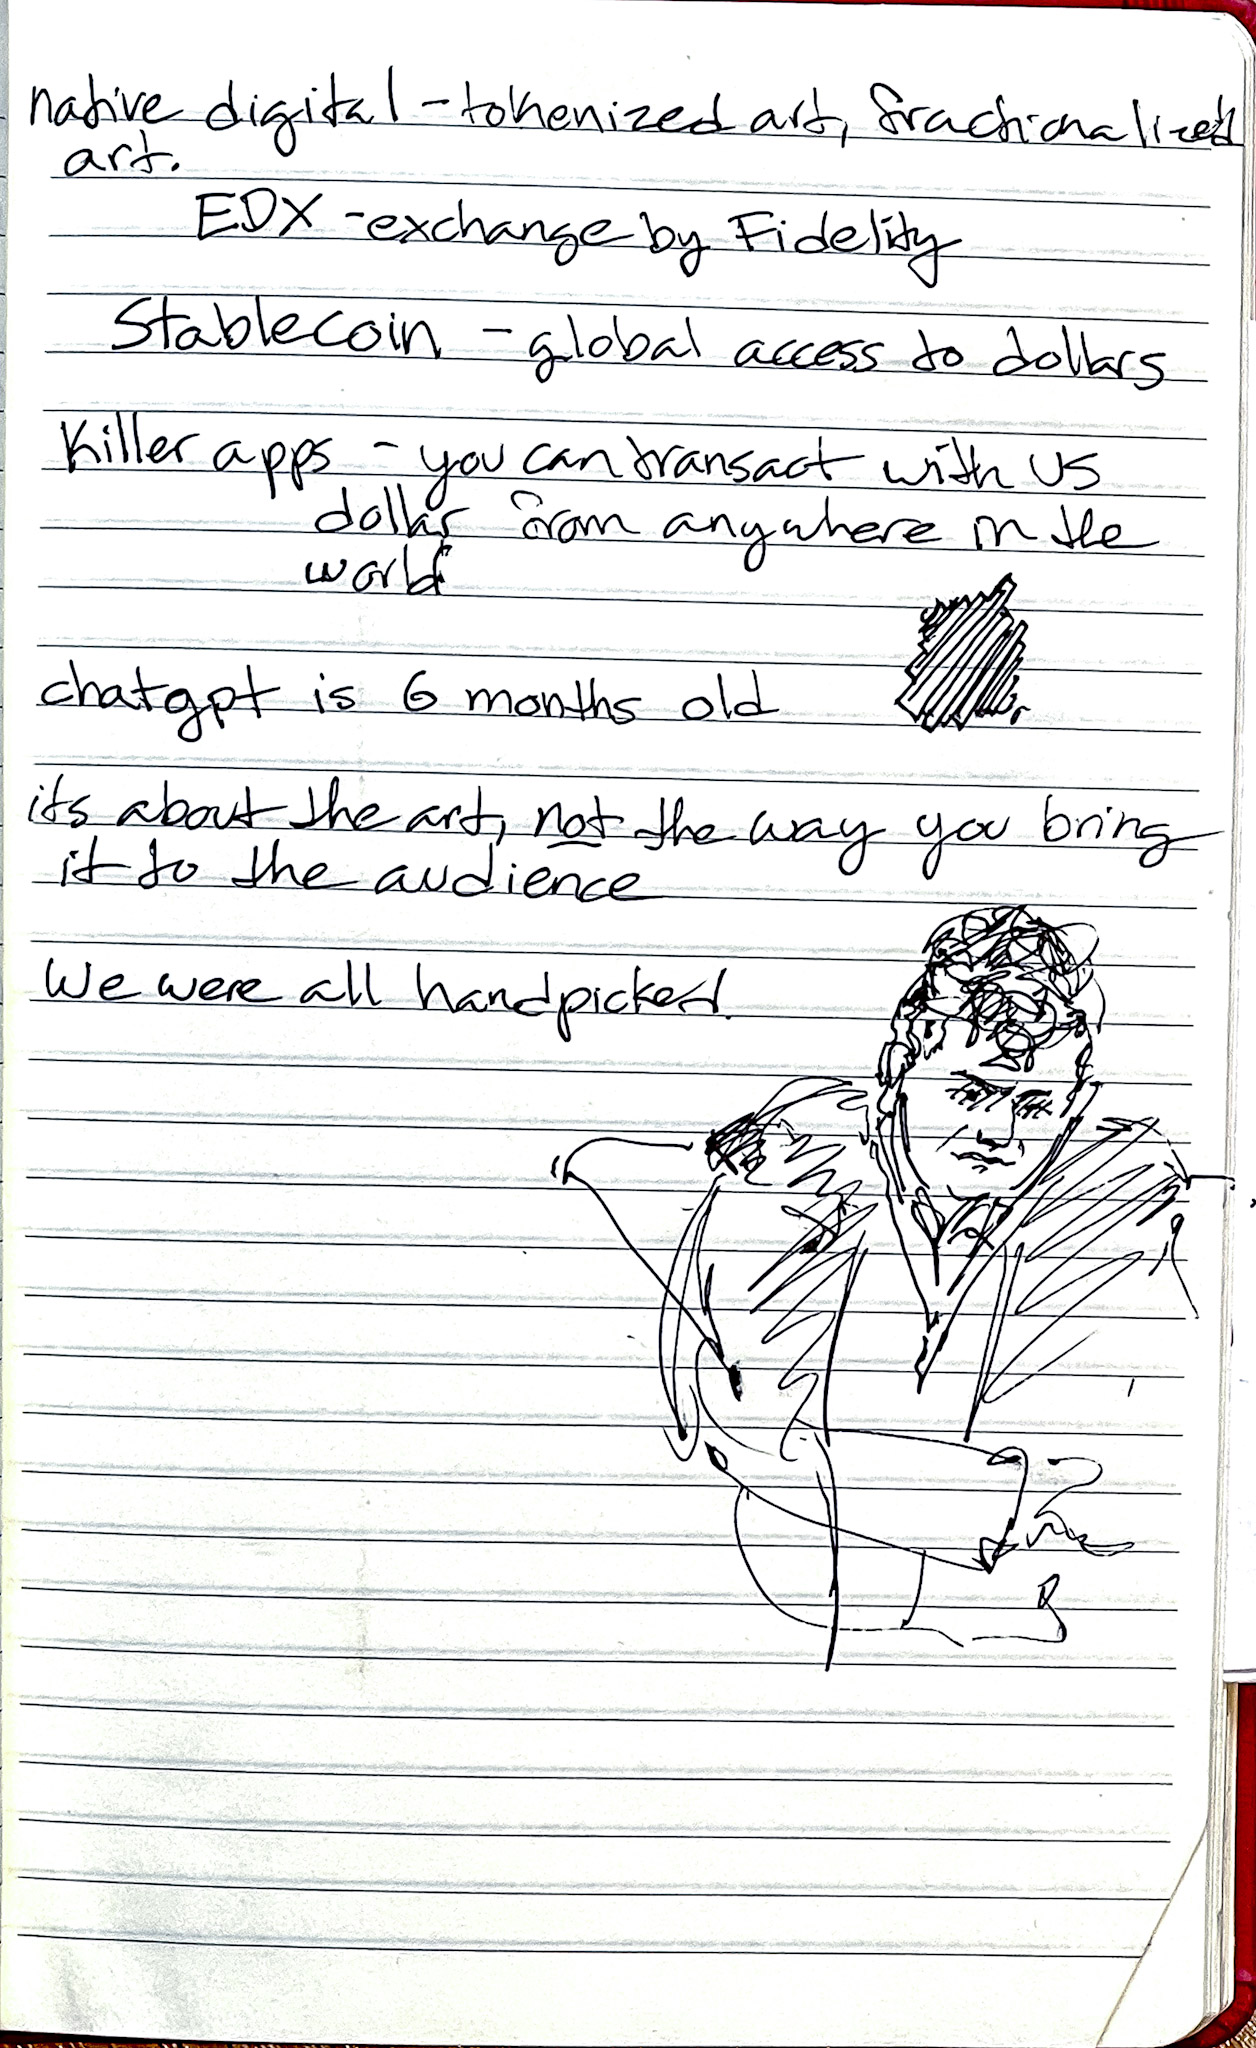 native digital - tokenized art, fractionalized
art.
EDX - exchange by Fidelity
Stablecoin - global access to dollars
Killer apps - you can transact with US
dollar from anywhere in the
world
chatgpt is 6 months old
its about the art, not the way you bring
it to the audience
We were all handpicked.